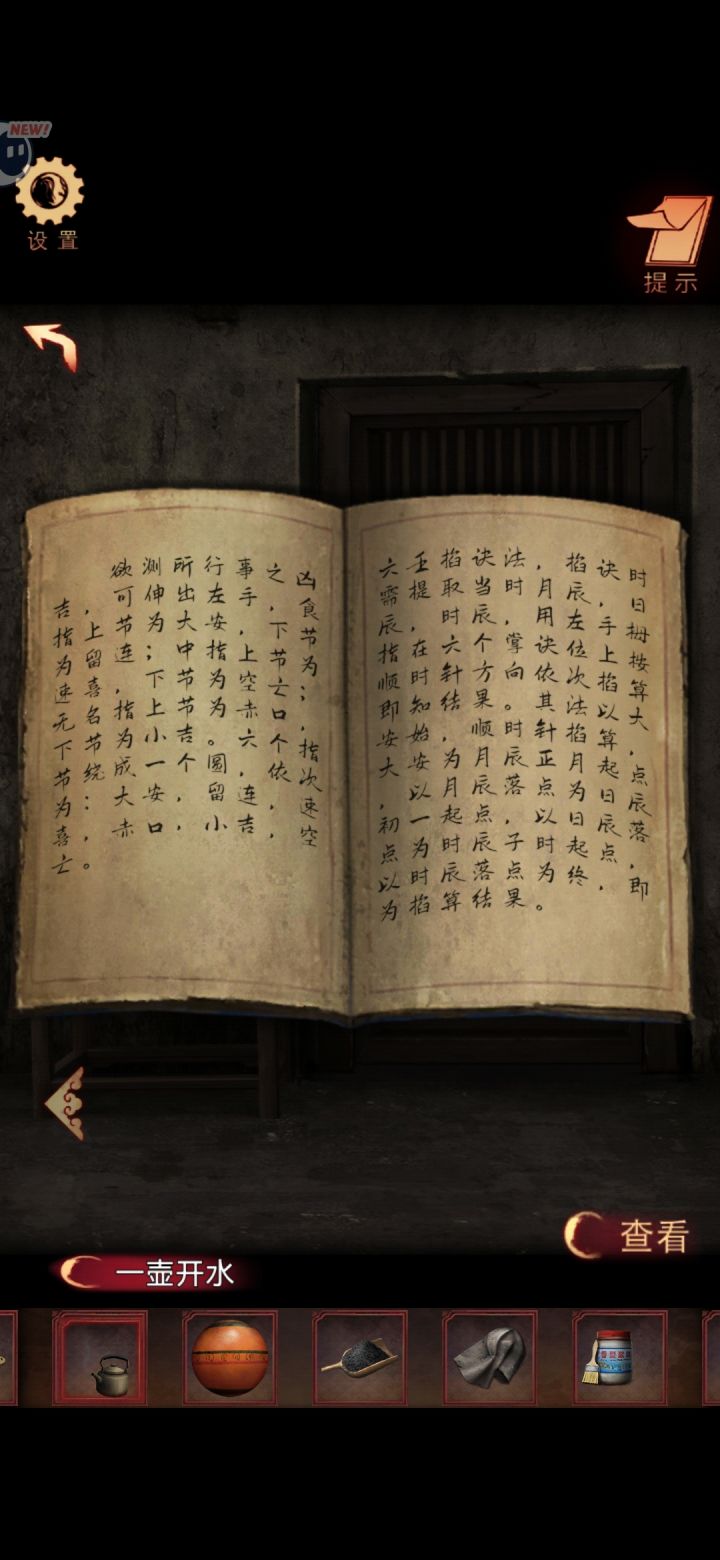 NEW!
设置
提示
时日拇按算大，点辰落，即
诀，手上掐以算起日辰点，
掐辰左位次法掐月为日起终
，月用诀依其针正点以时为。
法时，掌向。时辰落，子点果
诀当辰个方果顺月辰点辰落结
掐取时六针结，为月起时辰算
壬提，在时知始安以一为时掐
六需辰指顺即安大，初点以为
凶食节为；，指次速空
之，下节亡口个依，，
事手，上空赤六，连吉
行左安指为为。圆留小
所出大中节节吉个，，
测伸为；下上小一安口
欲可节连，指为成大赤
，上留喜名节绕：，。
吉指为速无下节为喜亡
查看
一壶开水